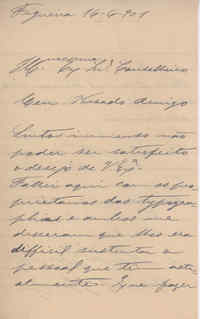 Figueira 16-6-901
Meu Presado Amigo
Sinto immenso não
poder ser satisfeito
o desejo de V. Exª.
Fallei aqui com os pro
prietarios das typogra
phias e ambos me
disseram que lhes era
difficil sustentar o
pessoal que têm actu
almente. E que